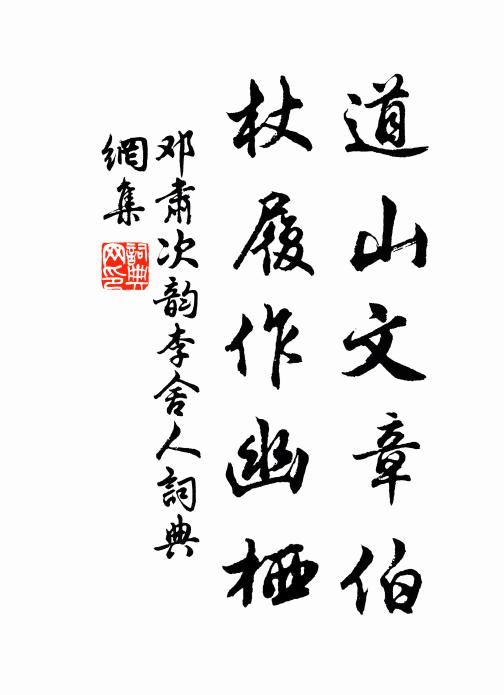 道山文章伯
杖履作幽栖
邓肅次韵李舍人詞典
網集
詞典
网印